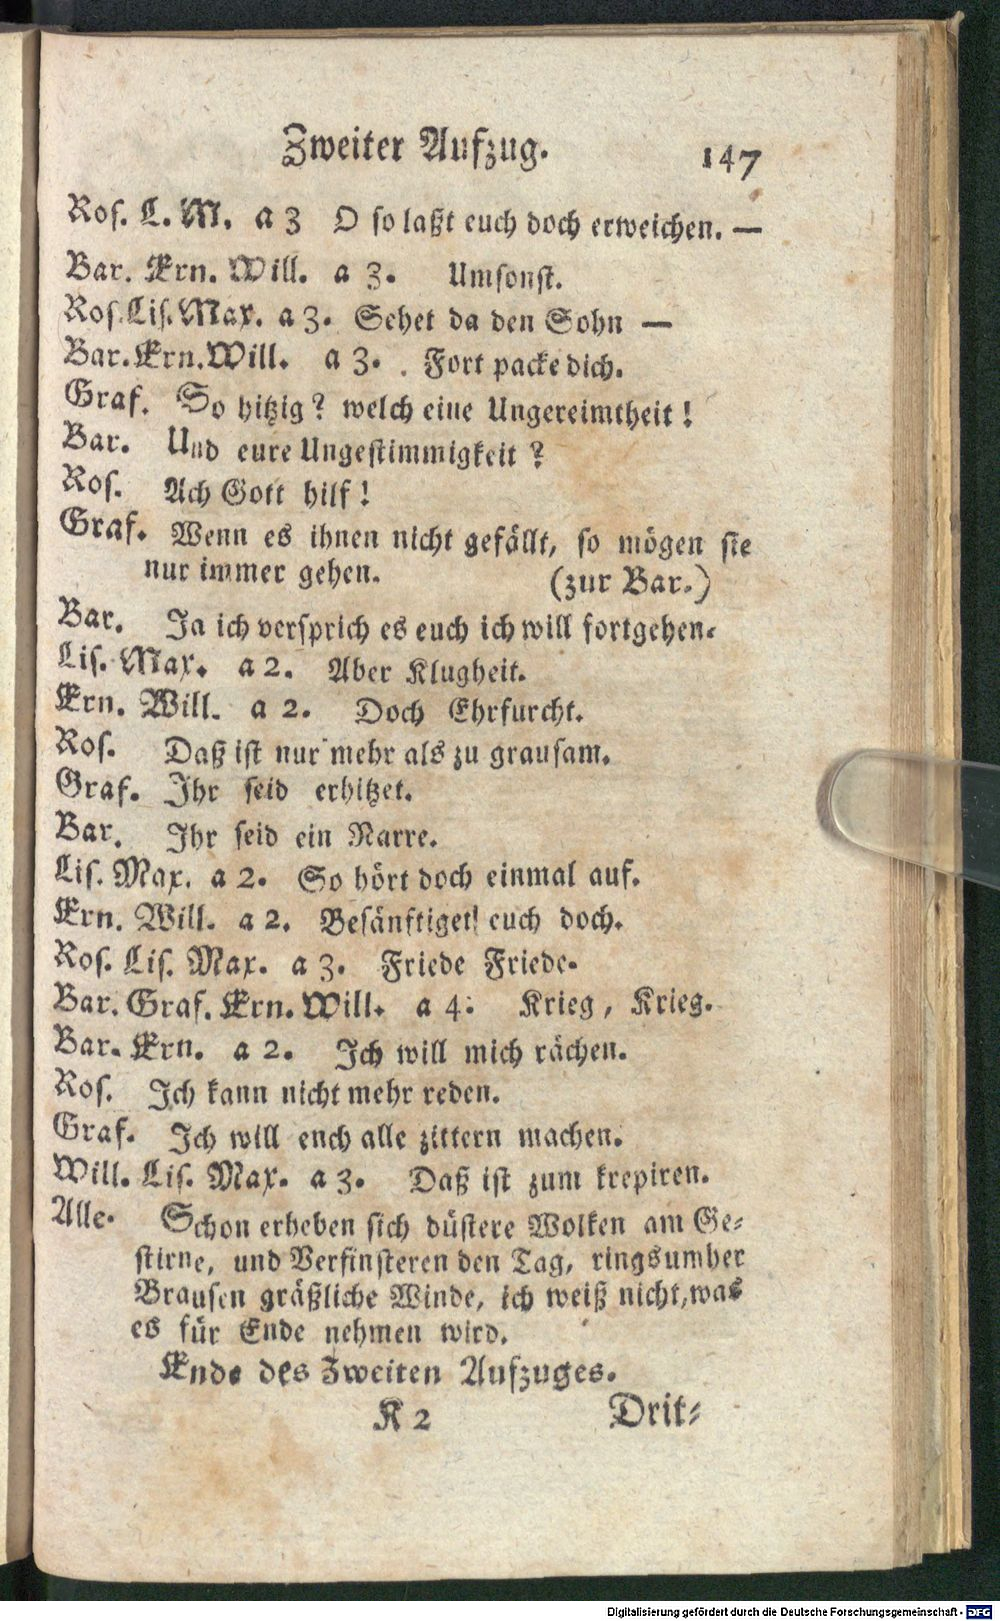 Zweiter Aufzug. 147
Ros. L. M. a 3 O so laßt euch doch erweichen. —
Bar. Ern. Will. a 3. Umsonst.
Ros. Lis. Max. a 3. Sehet da den Sohn —
Bar. Ern. Will. a 3. Fort packe dich.
Graf. So hitzig? welch eine Ungereimtheit!
Bar. Und eure Ungestimmigkeit?
Ros. Ach Gott hilf!
Graf. Wenn es ihnen nicht gefällt, so mögen sie
nur immer gehen. (zur Bar.)
Bar. Ja ich versprich es euch ich will fortgehen.
Lis. Max. a 2. Aber Klugheit.
Ern. Will. a 2. Doch Ehrfurcht.
Ros. Daß ist nur mehr als zu grausam.
Graf. Ihr seid erhitzet.
Bar. Ihr seid ein Narre.
Lis. Max. a 2. So hört doch einmal auf.
Ern. Will. a 2. Besänftiget! euch doch.
Ros. Lis. Max. a 3. Friede Friede.
Bar. Graf. Ern. Will. a 4. Krieg, Krieg.
Bar. Ern. a 2. Ich will mich rächen.
Ros. Ich kann nicht mehr reden.
Graf. Ich will ench alle zittern machen.
Will. Lis. Max. a 3. Daß ist zum krepiren.
Alle. Schon erheben sich düstere Wolken am Ge-
stirne, und Verfinsteren den Tag, ringsumher
Brausen gräßliche Winde, ich weiß nicht, was
es für Ende nehmen wird.
Ende des Zweiten Aufzuges.
K 2 Drit-
Digitalisierung gefördert durch die Deutsche Forschungsgemeinschaft - DFG